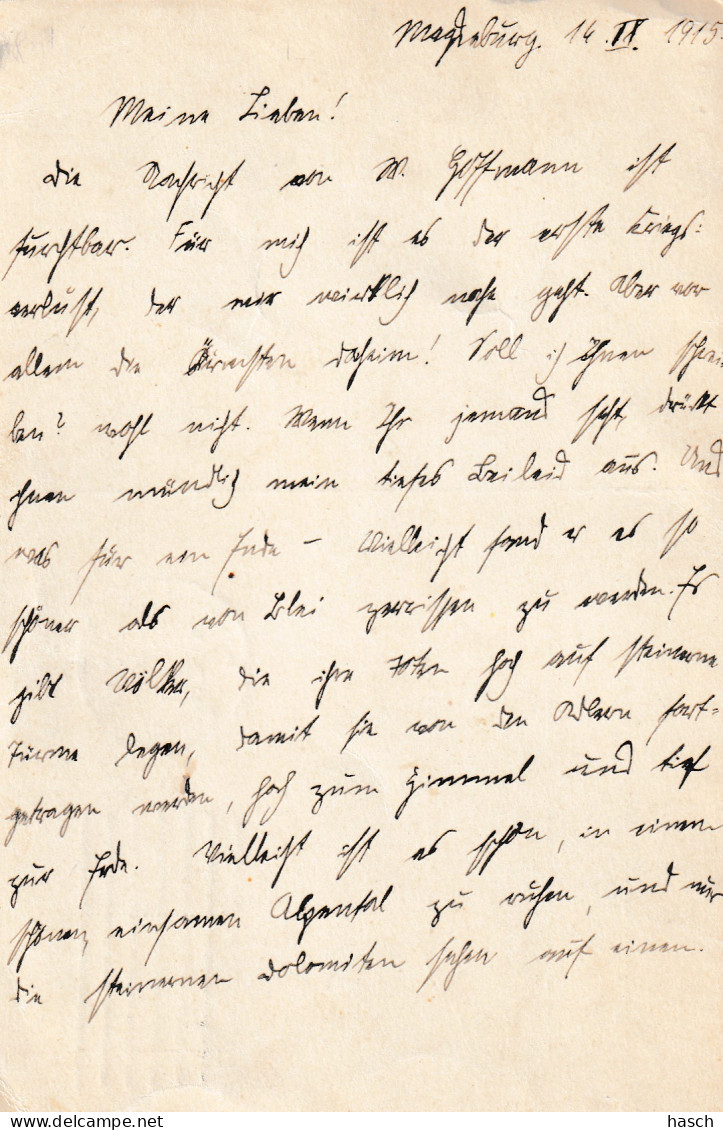 Magdeburg. 14. IX. 1915.
Meine Lieben!
Die Nachricht von W. Hoffmann ist
furchtbar. Für mich ist es der erste Kriegs-
verlust, der mir wirklich nahe geht. Aber vor
allem die Ärmsten daheim! Soll ich ihnen schrei-
ben? wohl nicht. Wenn Ihr jemand seht, drückt
ihnen mündlich mein tiefes Beileid aus. Und
was für ein Ende – Vielleicht fand er es so
schöner als von Blei zerrissen zu werden. Es
gibt Völker, die ihre Toten hoch auf steinerne
Türme legen, damit sie von den Adlern fort-
getragen werden, hoch zum Himmel und tief
zur Erde. Vielleicht ist es schön, in einem
schönen, einsamen Alpental zu ruhen, und nur
die steinernen Dolomiten sehen auf einen.
hasch